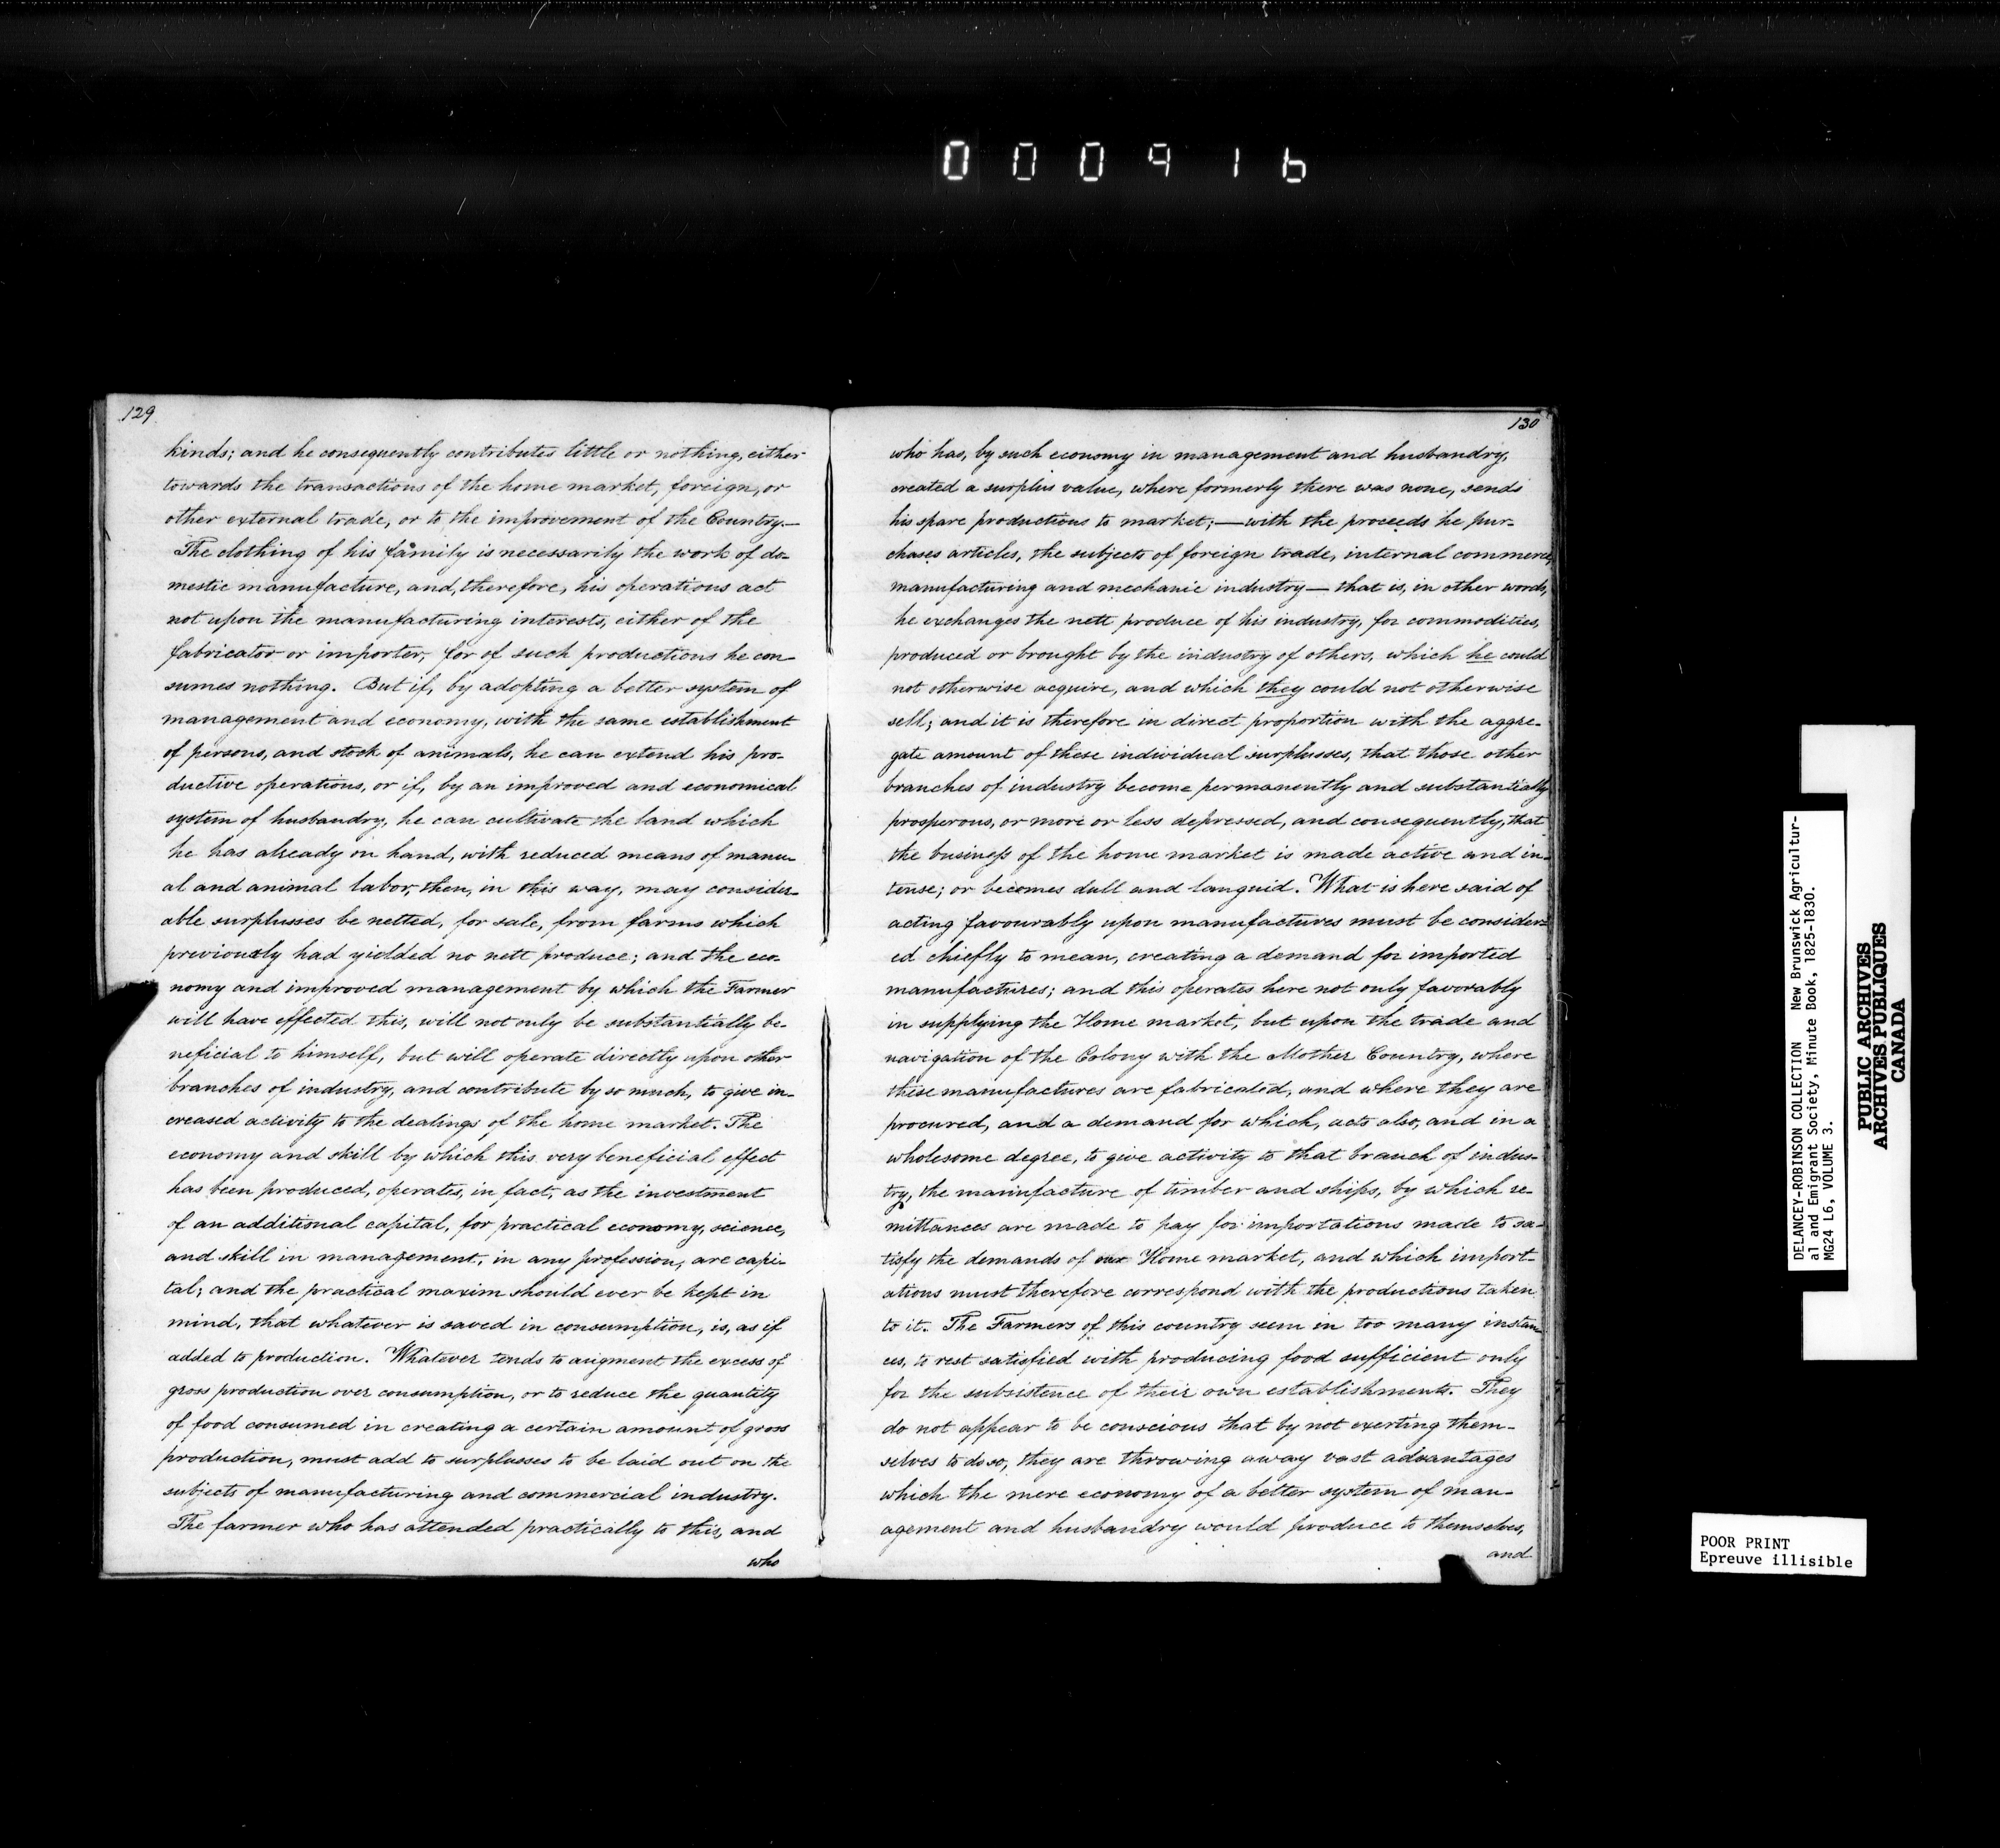 000916
129
kinds; and he consequently contributes little or nothing, either
towards the transactions of the home market, foreign, or
other external trade, or to the improvement of the Country.—
The clothing of his family is necessarily the work of do-
mestic manufacture, and, therefore, his operations act
not upon the manufacturing interests, either of the
fabricator or importer, for of such productions he con-
sumes nothing. But if, by adopting a better system of
management and economy, with the same establishment
of persons, and stock of animals, he can extend his pro-
ductive operations, or if, by an improved and economical
system of husbandry, he can cultivate the land which
he has already on hand, with reduced means of manu-
al and animal labor, then, in this way, may consider-
able surplusses be netted, for sale, from farms which
previously had yielded no nett produce; and the eco-
nomy and improved management by which the Farmer
will have effected this, will not only be substantially be-
neficial to himself, but will operate directly upon other
branches of industry, and contribute by so much, to give in-
creased activity to the dealings of the home market. The
economy and skill by which this very beneficial effect
has been produced, operates, in fact, as the investment
of an additional capital, for practical economy, science,
and skill in management, in any profession, are capi-
tal; and the practical maxim should ever be kept in
mind, that whatever is saved in consumption, is, as if
added to production. Whatever tends to augment the excess of
gross production over consumption, or to reduce the quantity
of food consumed in creating a certain amount of gross
production, must add to surplusses to be laid out on the
subjects of manufacturing and commercial industry.
The farmer who has attended practically to this, and
who
130
who has, by such economy in management and husbandry,
created a surplus value, where formerly there was none, sends
his spare productions to market; — with the proceeds he pur-
chases articles, the subjects of foreign trade, internal commerce,
manufacturing and mechanic industry — that is, in other words,
he exchanges the nett produce of his industry, for commodities,
produced or brought by the industry of others, which he could
not otherwise acquire, and which they could not otherwise
sell; and it is therefore in direct proportion with the aggre-
gate amount of these individual surplusses, that those other
branches of industry become permanently and substantially
prosperous, or more or less depressed, and consequently, that
the business of the home market is made active and in-
tense; or becomes dull and languid. What is here said of
acting favourably upon manufactures must be consider-
ed chiefly to mean, creating a demand for imported
manufactures; and this operates here not only favorably
in supplying the Home market, but upon the trade and
navigation of the Colony with the Mother Country, where
these manufactures are fabricated, and where they are
procured, and a demand for which, acts also, and in a
wholesome degree, to give activity to that branch of indus-
try, the manufacture of timber and ships, by which re-
mittances are made to pay for importations made to sa-
tisfy the demands of our Home market, and which import-
ations must therefore correspond with the productions taken
to it. The Farmers of this country seem in too many instan-
ces, to rest satisfied with producing food sufficient only
for the subsistence of their own establishments. They
do not appear to be conscious that by not exerting them-
selves to do so, they are throwing away vast advantages
which the mere economy of a better system of man-
agement and husbandry would produce to themselves,
and
DELANCEY-ROBINSON COLLECTION New Brunswick Agricultur-
al and Emigrant Society, Minute Book, 1825-1830.
MG24 L6, VOLUME 3.
PUBLIC ARCHIVES
ARCHIVES PUBLIQUES
CANADA
POOR PRINT
Epreuve illisible